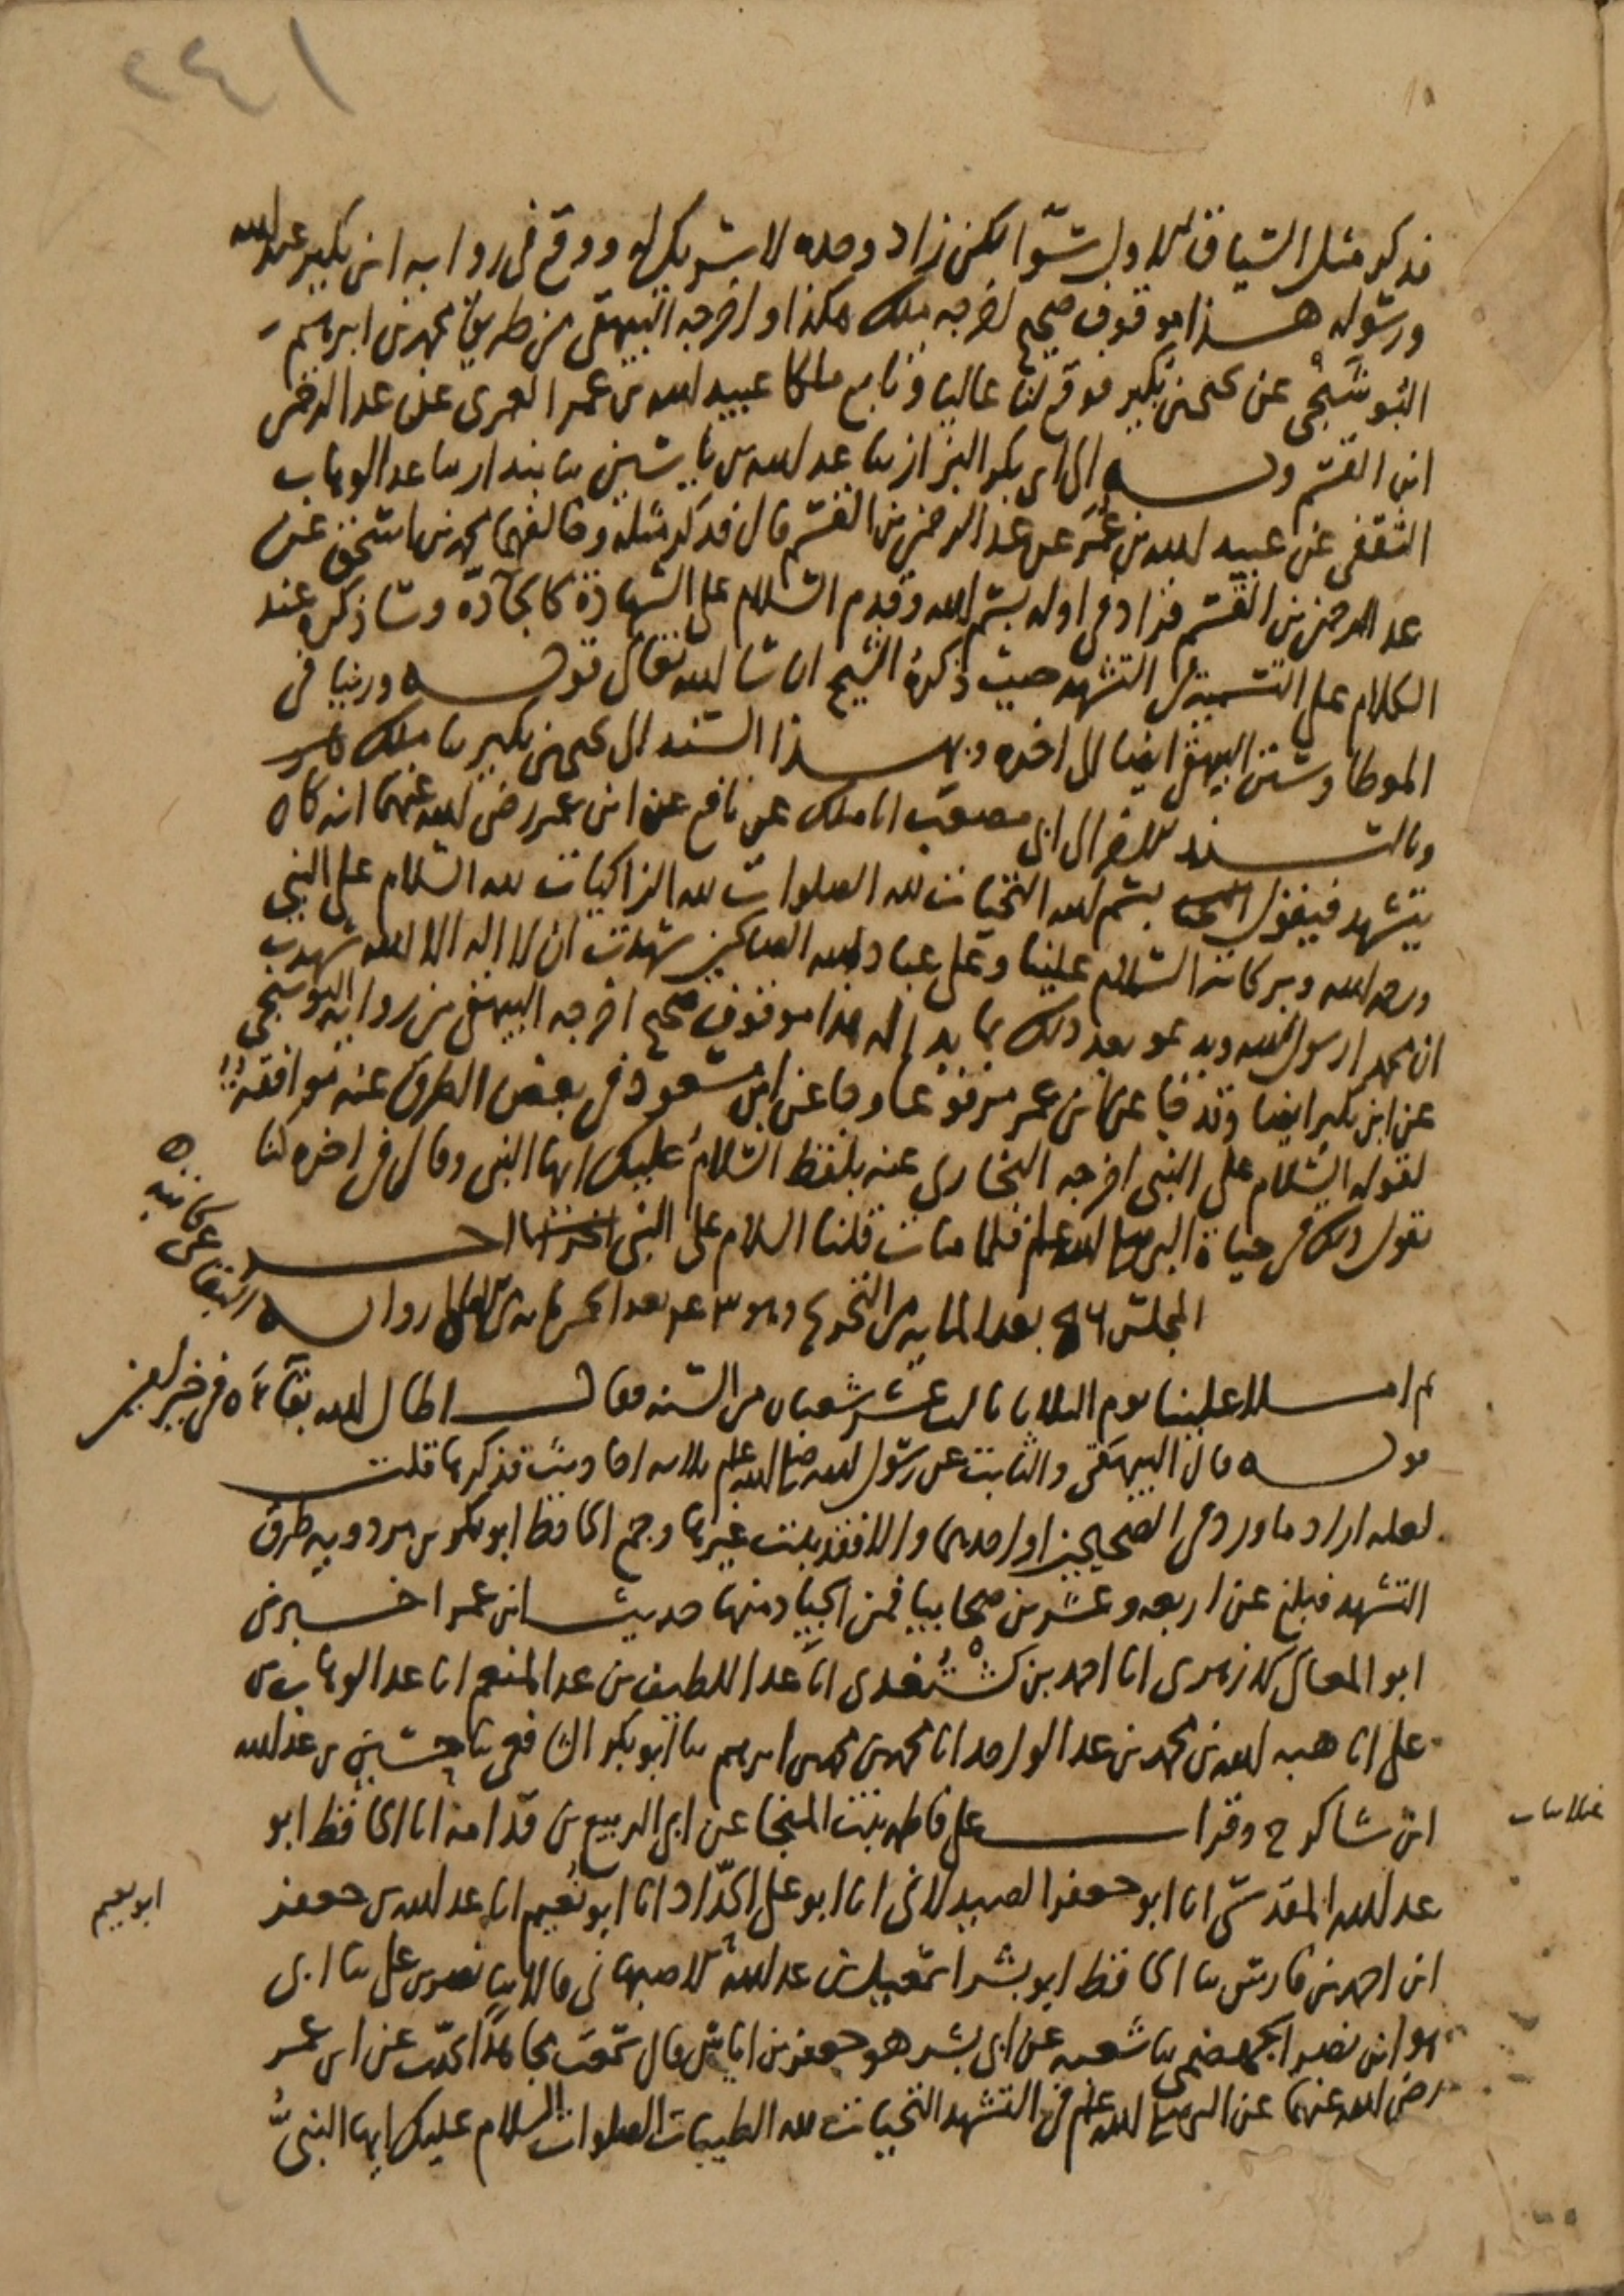 ١٤٢
فذكر مثل السياق الاول سوا لكن زاد وحده لا شريك له ووقع في رواية ابن بكير عبد الله
ورسوله هذا موقوف صحيح اخرجه ملك هكذا واخرجه البيهقي من طريق محمد بن ابرهيم
البُوشَنْجي عن يحيى بن بكير فوقع لنا عاليا وتابع ملكا عبيد الله بن عمر العمري عن عبد الرحمن
ابن القسم وبه الى ابي بكر البزار ثنا عبد الله بن ثنا بندار ثنا عبد الوهاب
الثقفي عن عبيد الله بن عُمَر عن عبد الرحمن بن القسم قال فذكر مثله وخالفهما محمد بن اسحق عن
عبد الرحمن بن القسم فزاد في اوله بسم الله وقدم السلام على الشهادة كالجادّة وساذكره عند
الكلام على التسمية في التشهد حيث ذكرهُ الشيخ ان شا الله تعالى قوله وروينا في
الموطا وسنن البيهقي ايضا الى اخره وبهذا السند الى يحيى بن بكير ثنا ملك
وبالسند الى ابي مصعب انا ملك عن نافع عن ابن عمر رضي الله عنهما انه كان
يتشهد فيقول بسم الله التحيات لله الصلوات لله الزاكيات لله السلام على النبي
ورحمة الله وبركاته السلام علينا وعلى عباد الله الصالحين شهدت ان لا اله الا الله شهدت
ان محمدا رسول الله ويدعو بعد ذلك بما بدا له هذا موقوف صحيح اخرجه البيهقي من رواية البوشنجي
عن ابن بكير ايضا وقد جا عن ابن عمر مرفوعا وجا عن ابن مسعود في بعض الطرق عنه موافقة
لقوله السلام على النبي اخرجه البخاري عنه بلفظ السلام عليك ايها النبي وقال في اخره كنا
نقول ذلك في حياة النبي صلى الله عليه وسلم فلما مات قلنا السلام على النبي اخر
المجلس بعد المايه من التخريج وهو بعد الخمس مايه من الامالي رواية البقاعي
كاتبه
ثم املا علينا يوم الثلاثا ثالث عشر شعبان من السنه فقال اطال الله بقآءَه في خير
قوله قال البيهقي والثابت عن رسول الله صلى الله عليه وسلم ثلاثه احاديث فذكرها قلت
لعله اراد ما ورد في الصحيحين او احدهما والا فقد ثبت غيرها وجمع الحافظ ابو بكر بن مردويه طرق
التشهد فبلغ عن اربعه وعشرين صحابيا فمن الجياد منها حديث ابن عمر اخبرني
ابو المعالي الازهري انا احمد بن كُشْتُغدي انا عبد اللطيف بن عبد المنعم انا عبد الوهاب بن
علي انا هبة الله بن محمد بن عبد الواحد انا محمد بن محمد بن ابرهيم ثنا ابو بكر الشافعي ثنا حسين بن عبد الله
ابن شاكر ح وقرات على فاطمه بنت المنجا عن ابي الربيع بن قدامة انا الحافظ ابو
عبد الله المقدسي انا ابو جعفر الصيدلاني انا ابو علي الحدّاد انا ابو نُعيم انا عبد الله بن جعفر
ابو نعيم
ابن احمد بن فارس ثنا الحافظ ابو بشر اسمعيل بن عبد الله الاصبهاني قالا ثنا نصر بن علي ثنا ابي
هو ابن نصر الجهضمي ثنا شعبه عن ابي بشر هو جعفر بن اياس قال سمعت مجاهدًا يحدّث عن ابن عمر
رضي الله عنهما عن النبي صلى الله عليه وسلم في التشهد التحيات لله الطيبات الصلوات السلام عليك ايها النبيُّ